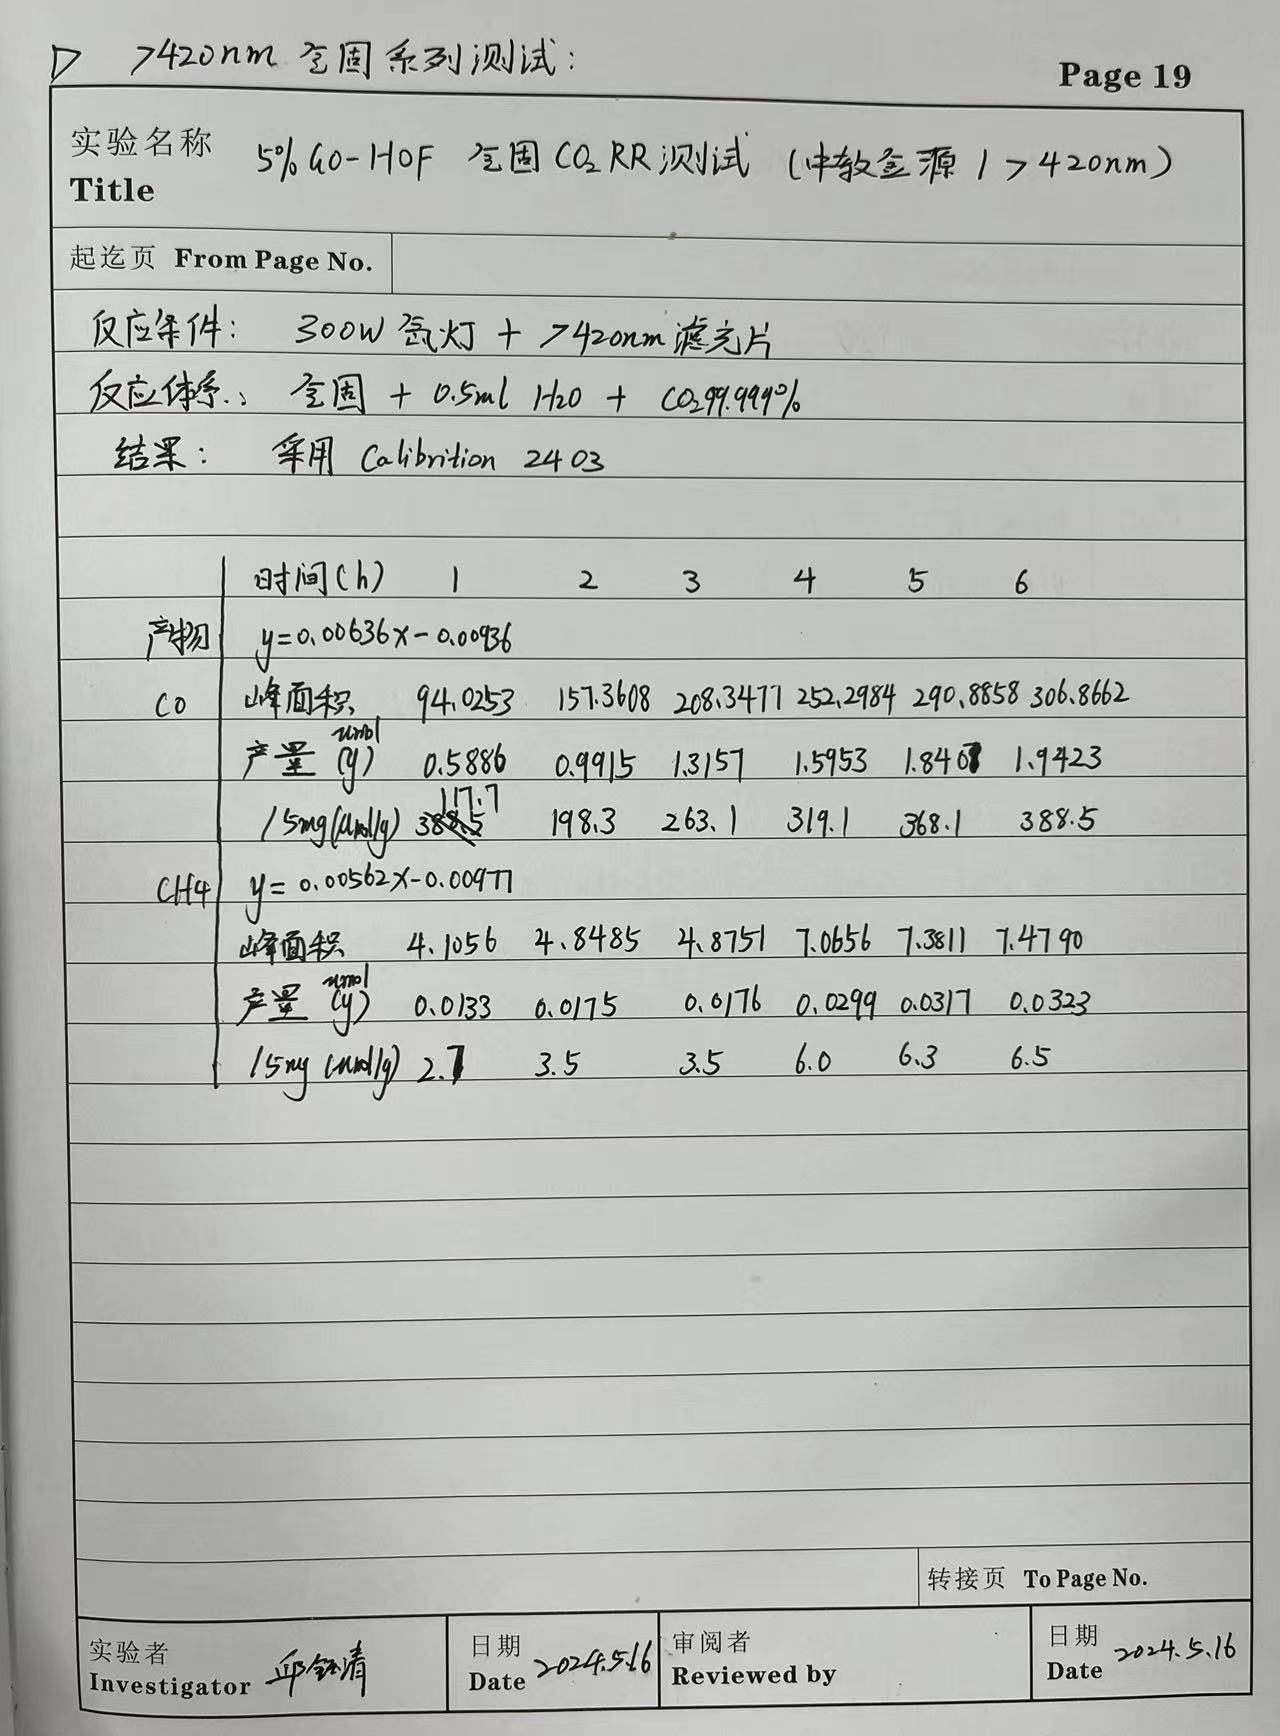 ▷ >420nm 全固系列测试:
Page 19
实验名称 Title 5% GO-HOF 全固 CO2RR 测试 (中教金源 / >420nm)
起迄页 From Page No.
反应条件: 300W 氙灯 + >420nm 滤光片
反应体系: 全固 + 0.5ml H2O + CO2 99.999%
结果: 采用 Calibrition 2403
时间(h) 1 2 3 4 5 6
产物 y=0.00636x-0.00936
CO 峰面积 94.0253 157.3608 208.3477 252.2984 290.8858 306.8662
产量(y) umol 0.5886 0.9915 1.3157 1.5953 1.8407 1.9423
/5mg(umol/g) 117.7 198.3 263.1 319.1 368.1 388.5
CH4 y=0.00562x-0.00977
峰面积 4.1056 4.8485 4.8751 7.0656 7.3811 7.4790
产量(y) umol 0.0133 0.0175 0.0176 0.0299 0.0317 0.0323
/5mg (umol/g) 2.7 3.5 3.5 6.0 6.3 6.5
转接页 To Page No.
实验者 Investigator 邱钰清
日期 Date 2024.5.16
审阅者 Reviewed by
日期 Date 2024.5.16